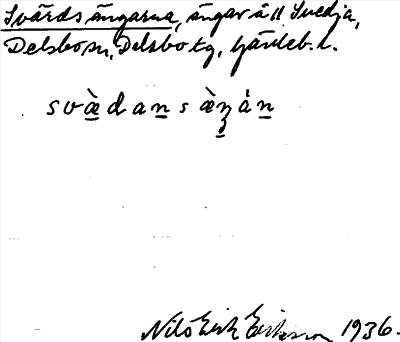 Svärdsängarna, ängar å ll Svedja,
Delsbo sn, Delsbo tg, Gävleb. l.
svæ̀dansæ̀ŋȧn
Nils Erik Eriksson 1936.